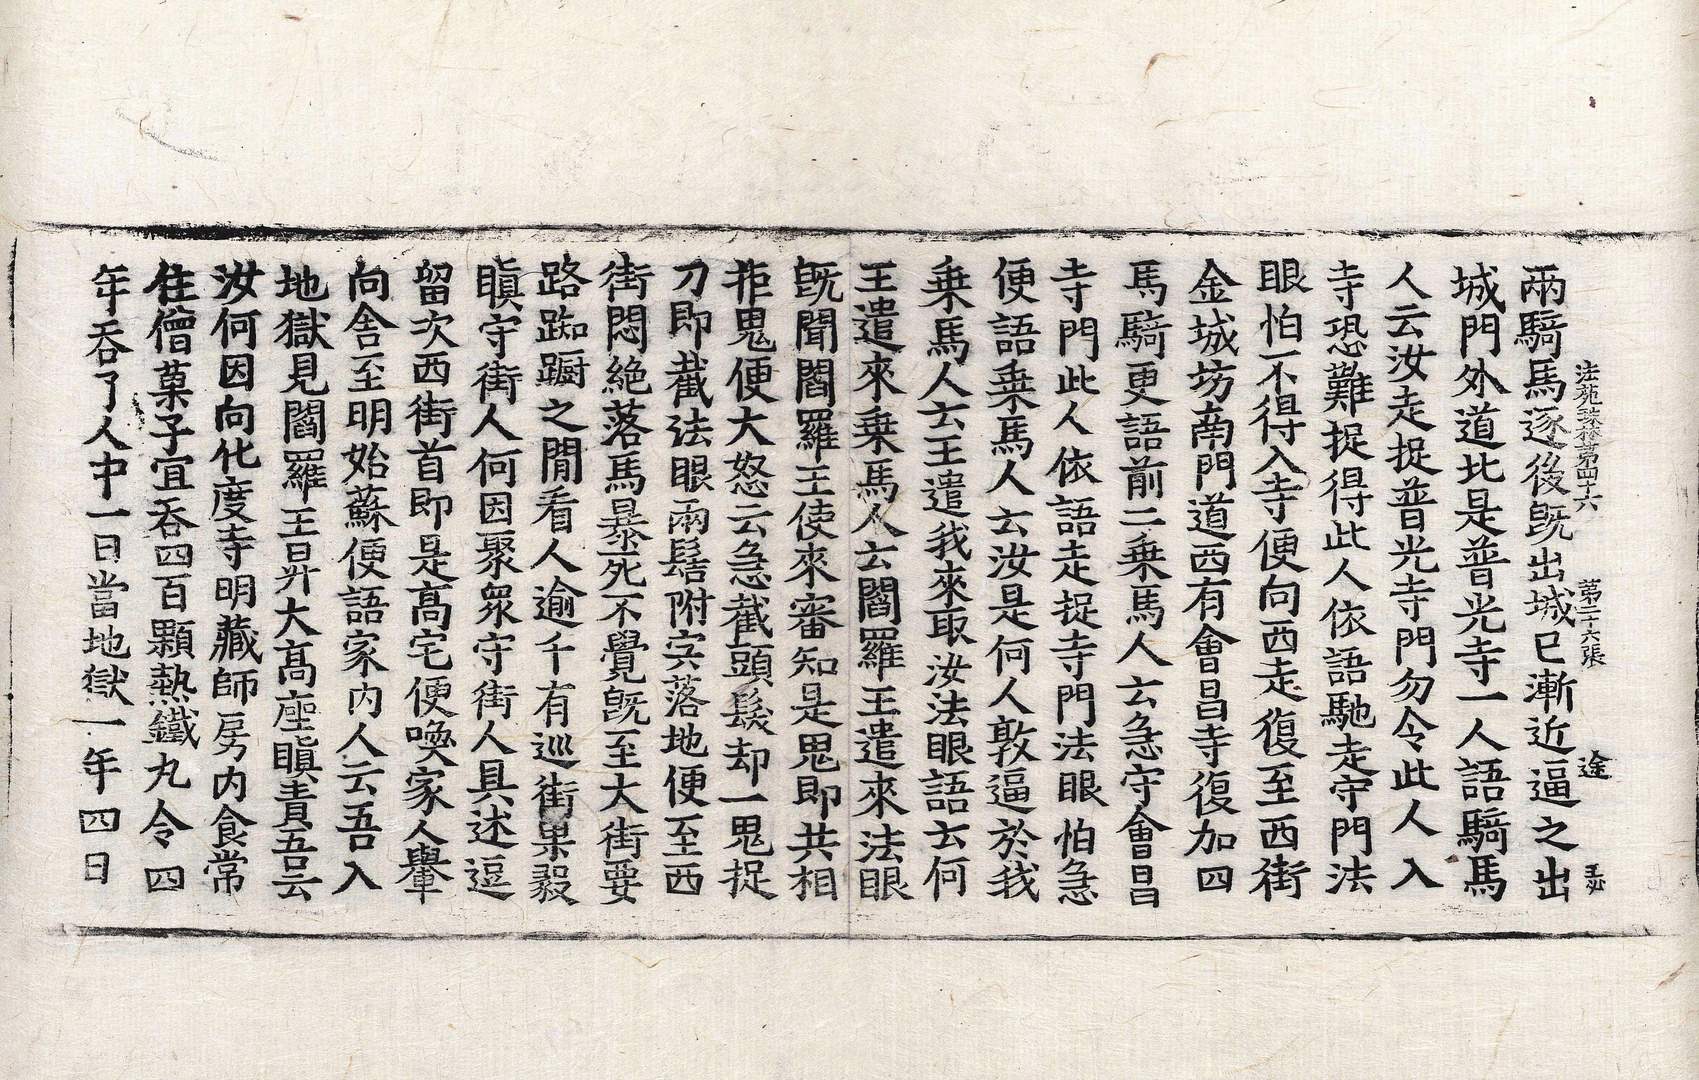 法苑珠林第四十六 第二十六張 途
兩騎馬逐後旣出城已漸近逼之出
城門外道北是普光寺一人語騎馬
人云汝走捉普光寺門勿令此人入
寺恐難捉得此人依語馳走守門法
眼怕不得入寺便向西走復至西街
金城坊南門道西有會昌寺復加四
馬騎更語前二乗馬人云急守會昌
寺門此人依語走捉寺門法眼怕急
便語乗馬人云汝是何人敦逼於我
乗馬人云王遣我來取汝法眼語云何
王遣來乗馬人云閻羅王遣來法眼
旣聞閻羅王使來審知是鬼即共相
拒鬼便大怒云急截頭髮却一鬼捉
刀即截法眼兩髻附宍落地便至西
街悶絶落馬暴死不覺旣至大街要
路踟蹰之間看人逾千有巡街果毅
瞋守街人何因聚衆守街人具述逗
留次西街首即是高宅便喚家人轝
向舍至明始蘇便語家內人云吾入
地獄見閻羅王昇大高座瞋責吾云
汝何因向化度寺明藏師房內食常
住僧菓子宜呑四百顆熱鐵丸令四
年呑了人中一日當地獄一年四日